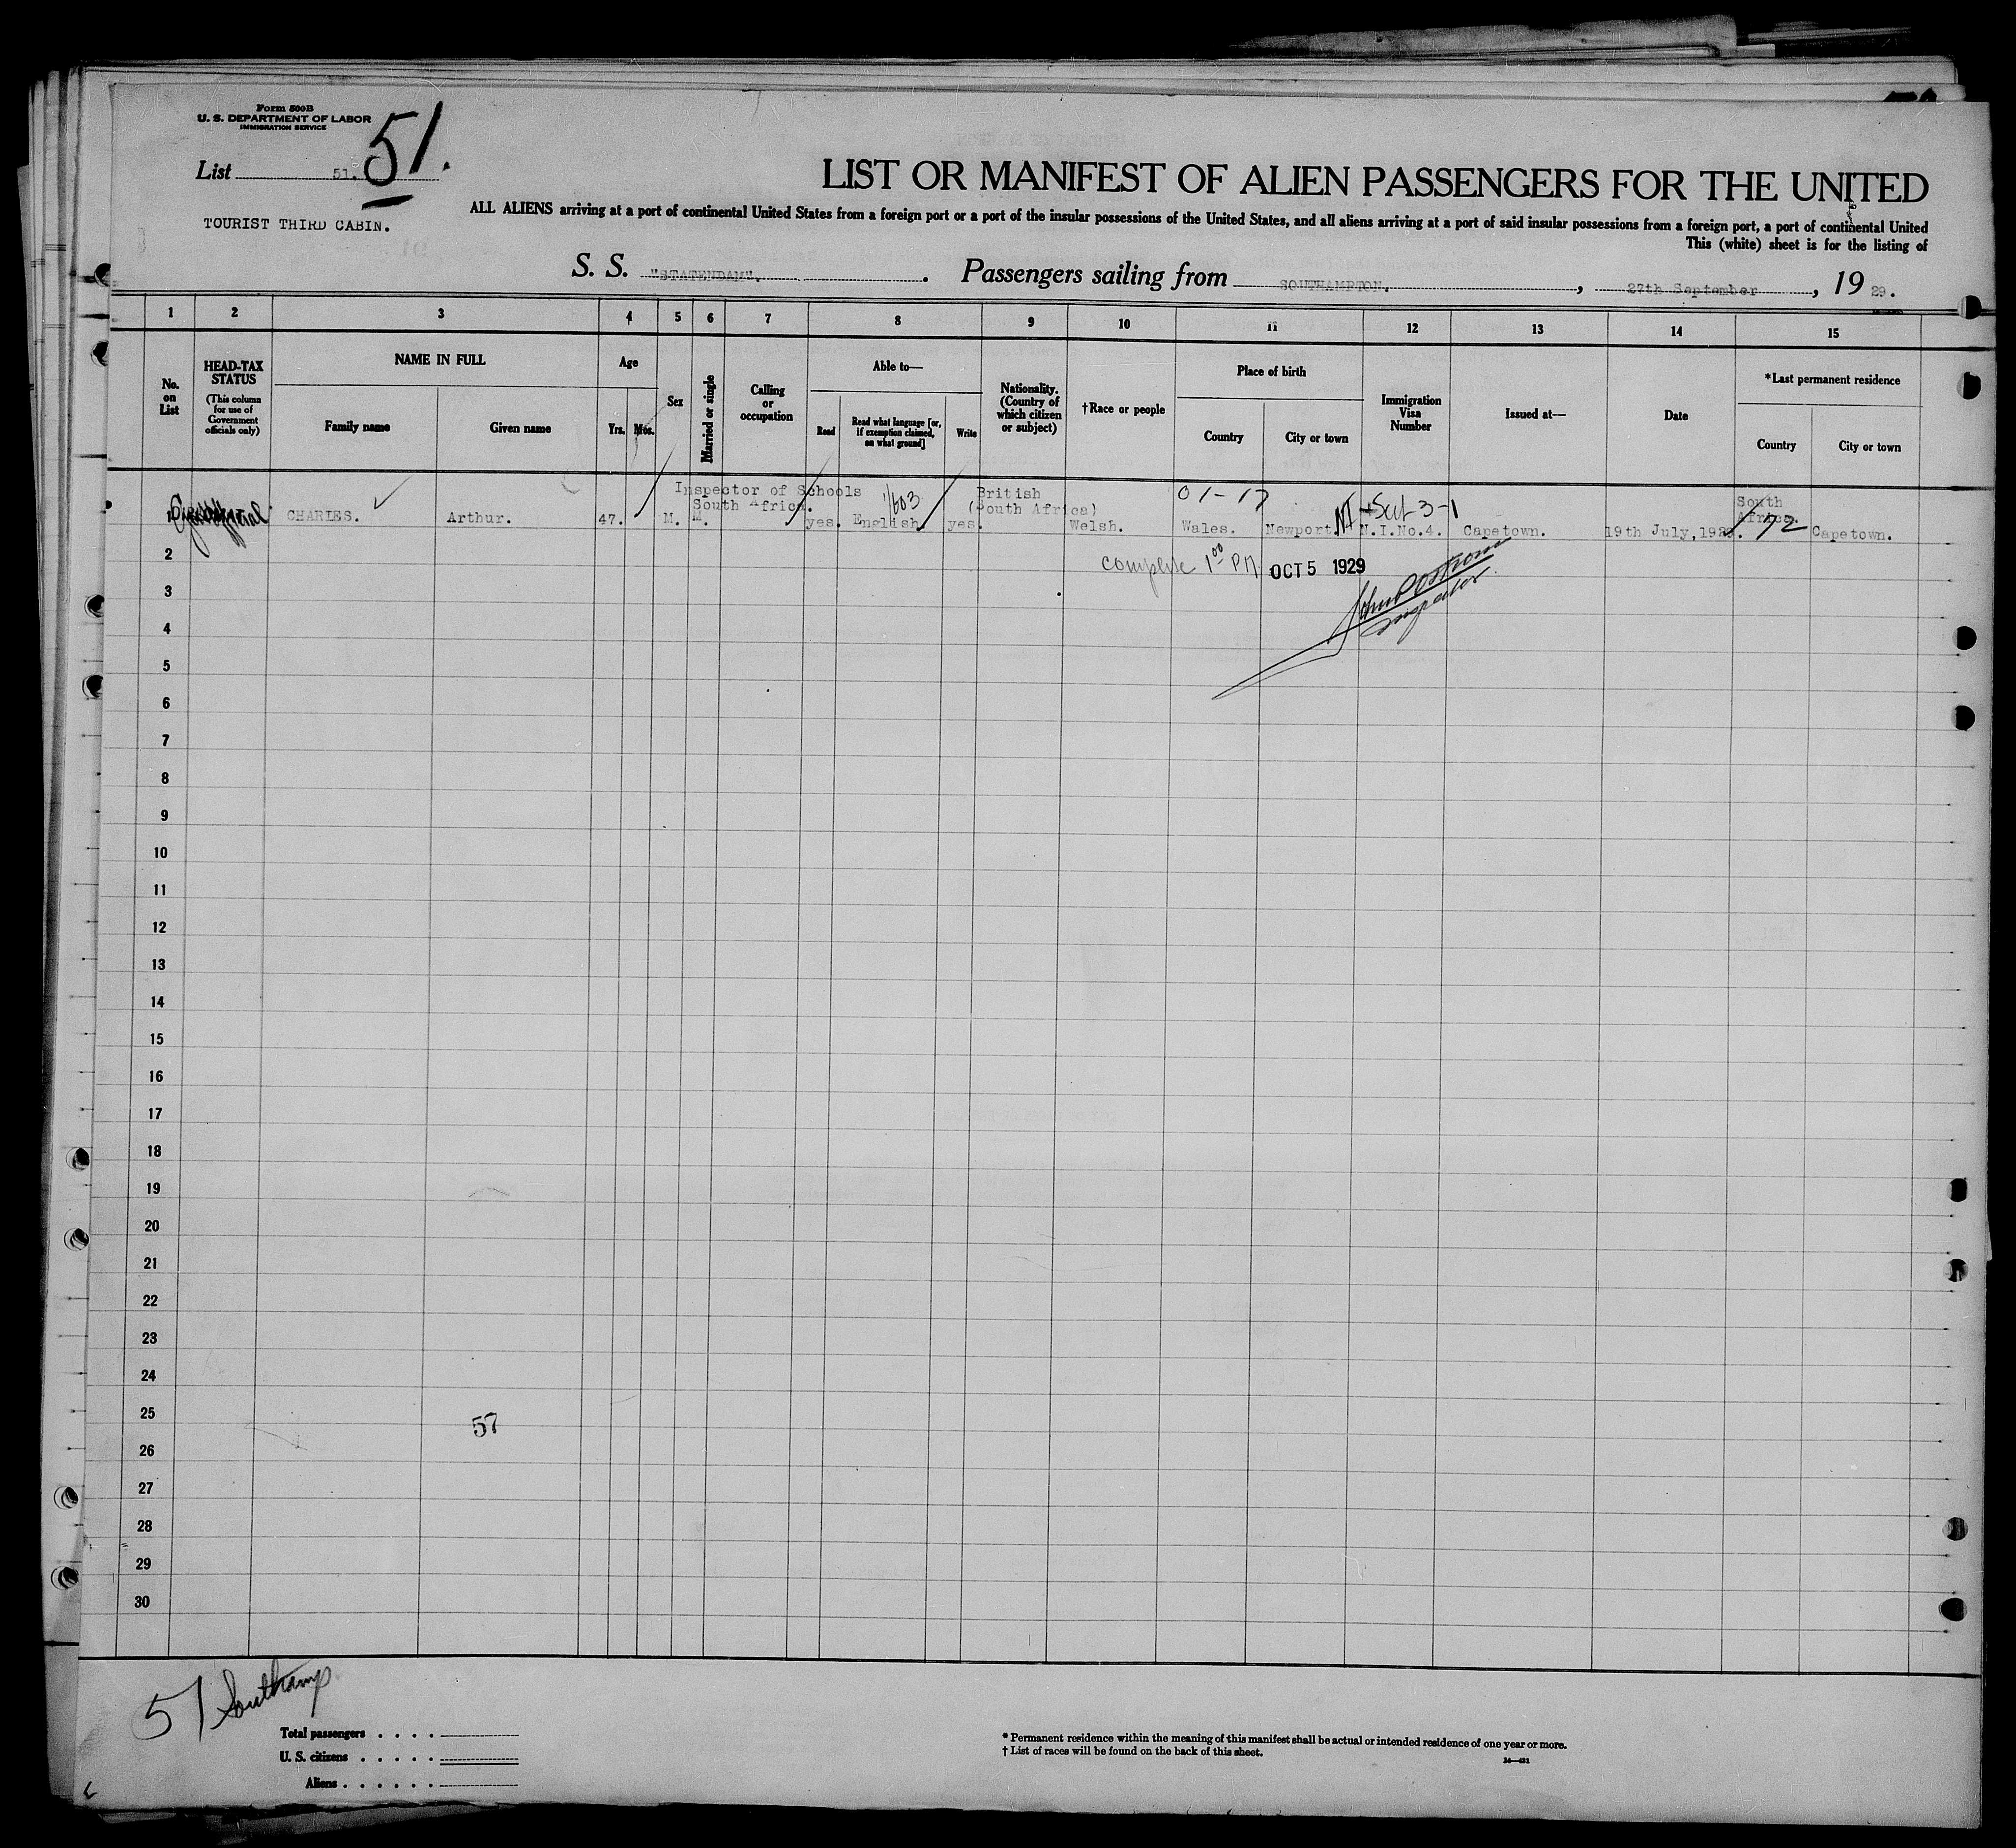 Form 500B
U. S. DEPARTMENT OF LABOR
IMMIGRATION SERVICE
List 51. 51.
TOURIST THIRD CABIN.
LIST OR MANIFEST OF ALIEN PASSENGERS FOR THE UNITED
ALL ALIENS arriving at a port of continental United States from a foreign port or a port of the insular possessions of the United States, and all aliens arriving at a port of said insular possessions from a foreign port, a port of continental United
This (white) sheet is for the listing of
S. S. "STATENDAM". Passengers sailing from SOUTHAMPTON, 27th September, 1929.
1 2 3 4 5 6 7 8 9 10 11 12 13 14 15
No. on List
HEAD-TAX STATUS (This column for use of Government officials only)
NAME IN FULL
Family name Given name
Age
Yrs. Mos.
Sex
Married or single
Calling or occupation
Able to—
Read Read what language [or, if exemption claimed, on what ground] Write
Nationality. (Country of which citizen or subject)
†Race or people
Place of birth
Country City or town
Immigration Visa Number
Issued at—
Date
*Last permanent residence
Country City or town
Inspector of Schools 1/603 British 01-17 South
South Africa. (South Africa) Sect 3-1 Africa. 72
1 CHARLES. Arthur. 47. M. M. yes. English. yes. Welsh. Wales. Newport. N.I.No.4. Capetown. 19th July, 1929. Capetown.
2 complete 1 00 PM OCT 5 1929
3 Inspector
4
5
6
7
8
9
10
11
12
13
14
15
16
17
18
19
20
21
22
23
24
25 57
26
27
28
29
30
51 Southamp
Total passengers . . . .
U. S. citizens . . . . .
Aliens . . . . . .
* Permanent residence within the meaning of this manifest shall be actual or intended residence of one year or more.
† List of races will be found on the back of this sheet.
14—421